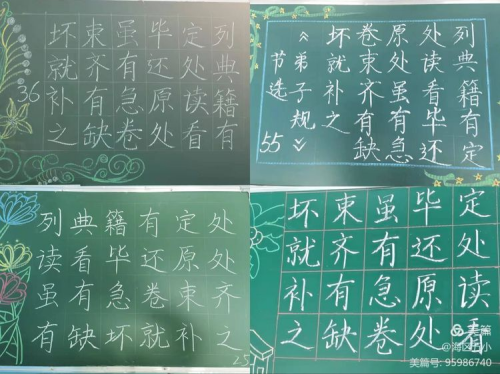 列典籍有
定处读看
毕还原处
虽有急卷
束齐有缺
坏就补之
36
列典籍有定
处读看毕还
原处虽有急
卷束齐有缺
坏就补之
《弟子规》
节选
55
列典籍有定处
读看毕还原处
虽有急卷束齐
有缺坏就补之
定处读看
毕还原处
虽有急卷
束齐有缺
坏就补之
美篇号: 95986740